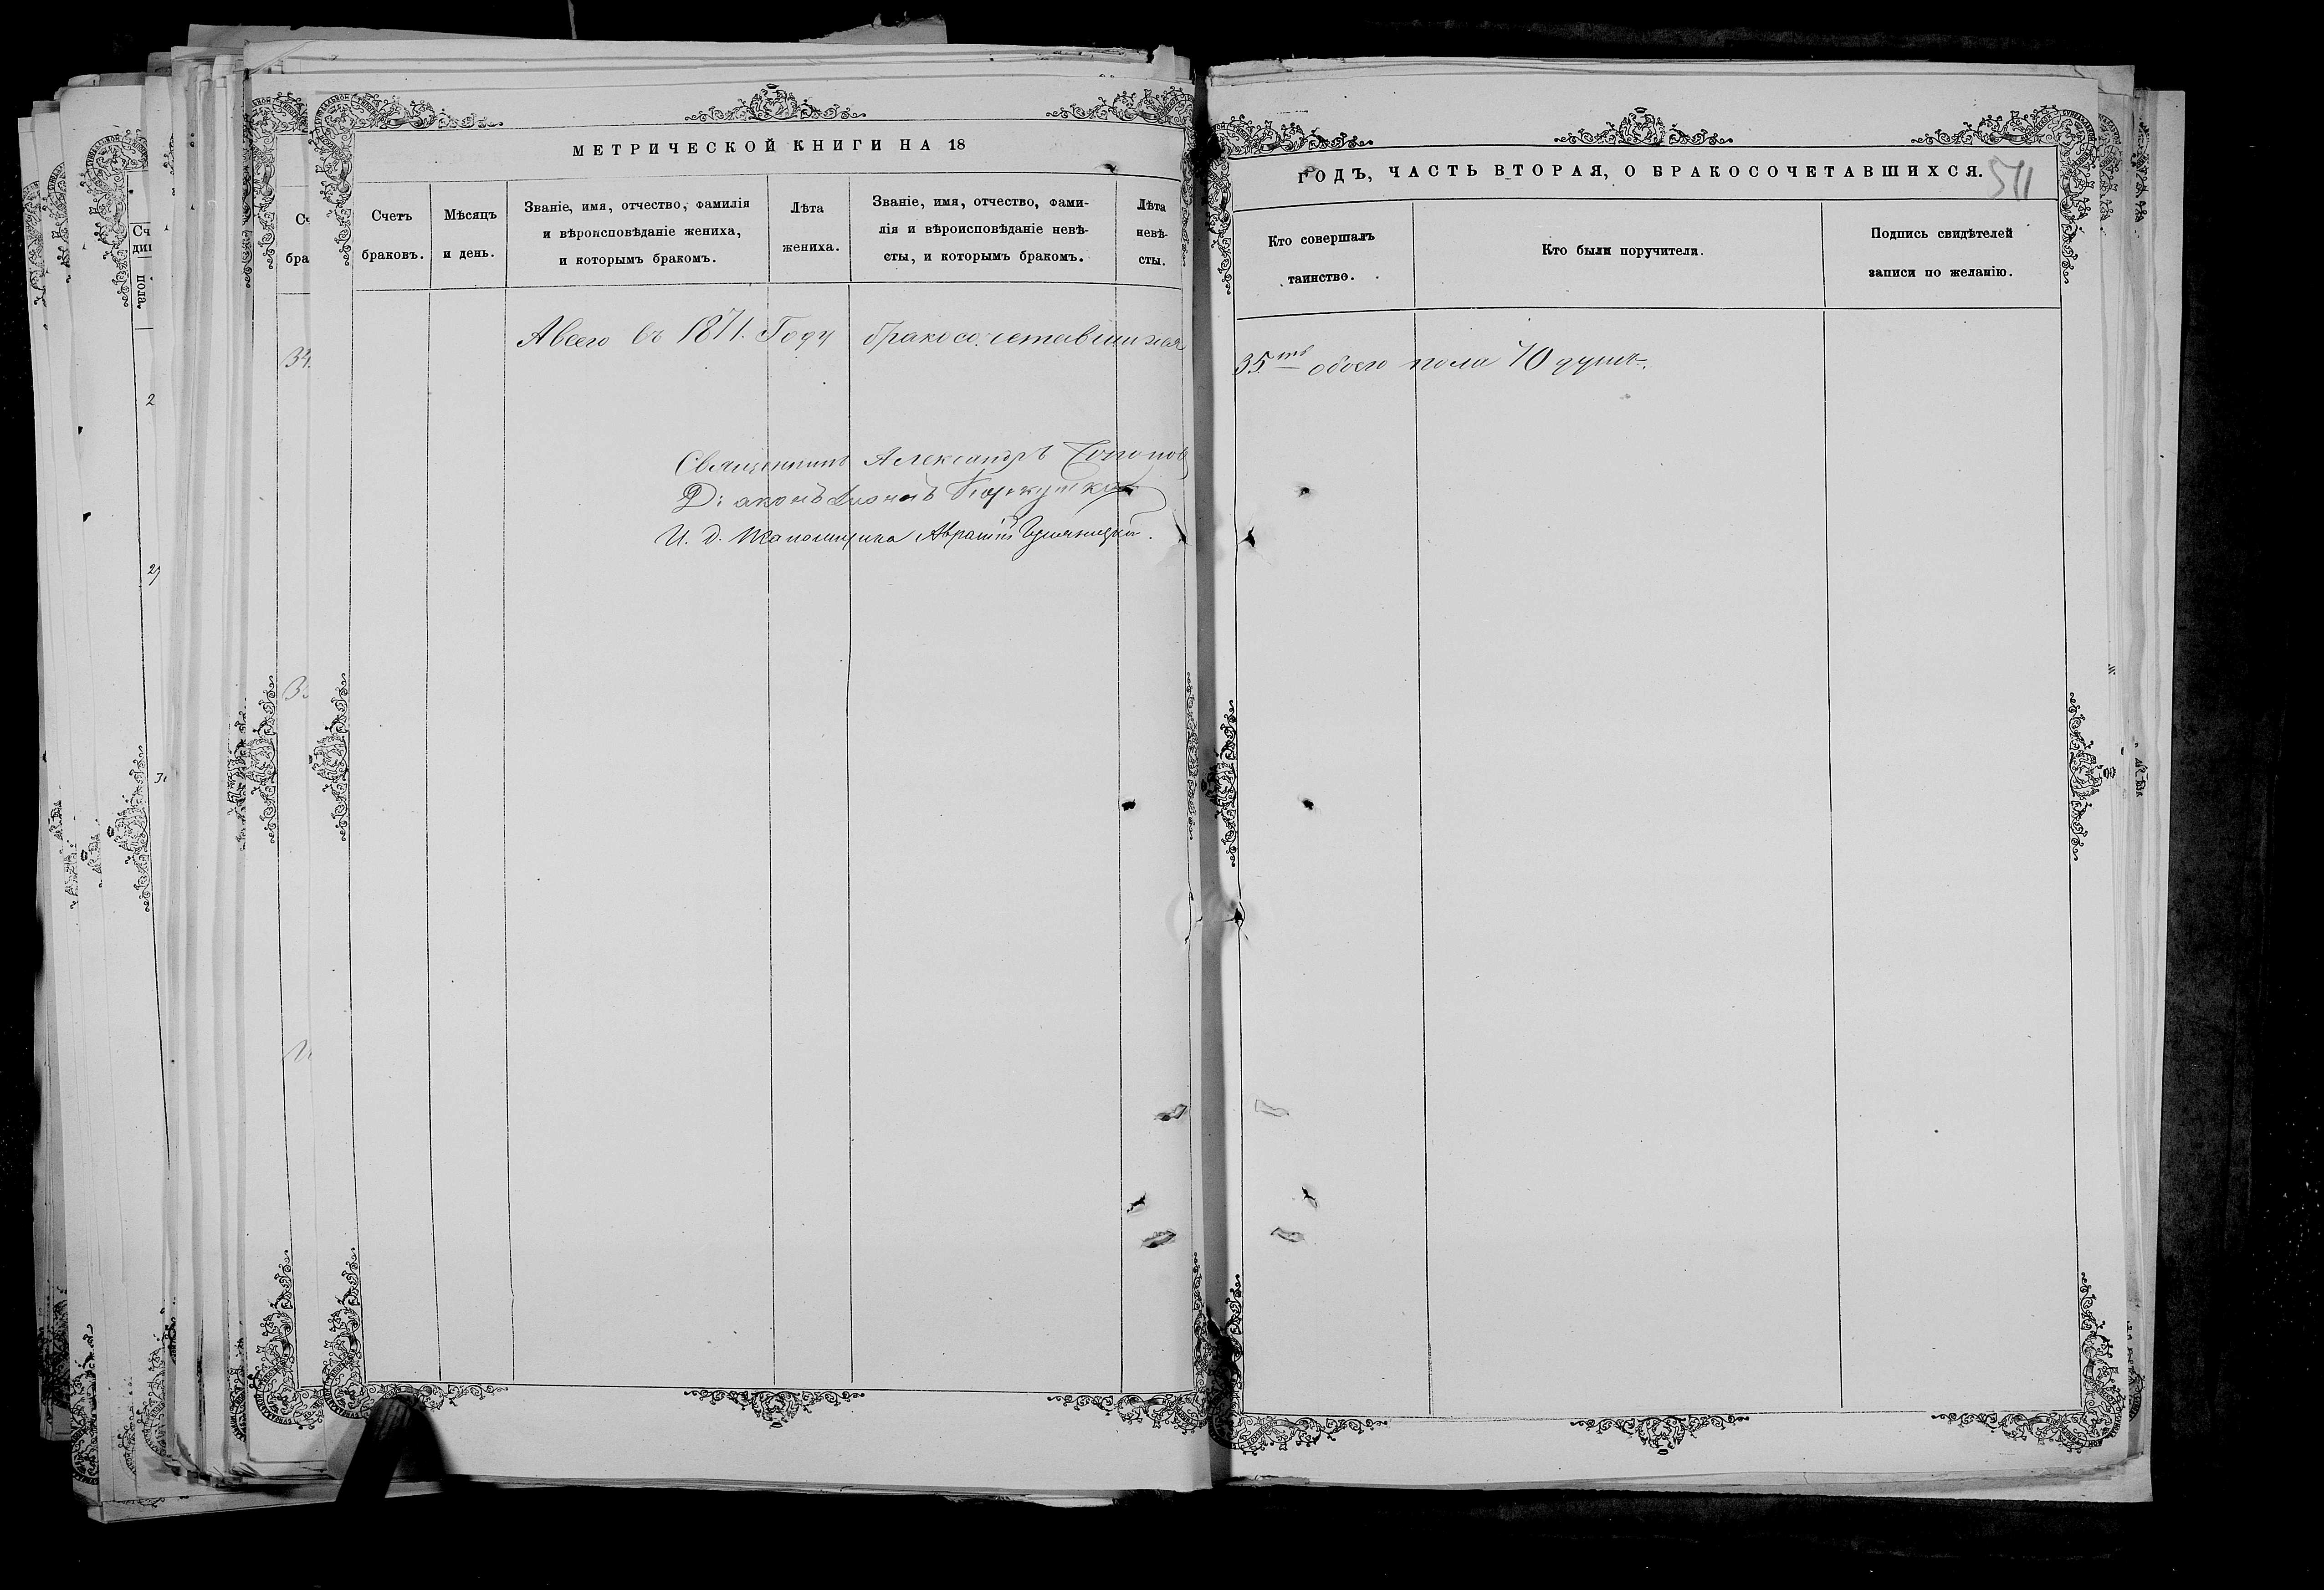 МЕТРИЧЕСКОЙ КНИГИ НА 18
Счетъ
браковъ.
Мѣсяцъ
и день.
Званіе, имя, отчество, фамилія
и вѣроисповѣданіе жениха,
и которымъ бракомъ.
Лѣта
жениха.
Званіе, имя, отчество, фами-
лія и вѣроисповѣданіе невѣ-
сты, и которымъ бракомъ.
Лѣта
невѣ-
сты.
А всего въ 1871. Году бракосочетавшихся
Священникъ Александръ
Діаконъ
И. д. Псаломщика
ГОДЪ, ЧАСТЬ ВТОРАЯ, О БРАКОСОЧЕТАВШИХСЯ.
511
Кто совершалъ
таинство.
Кто были поручители.
Подпись свидѣтелей
записи по желанію.
35.ть обоего пола 70 душъ.